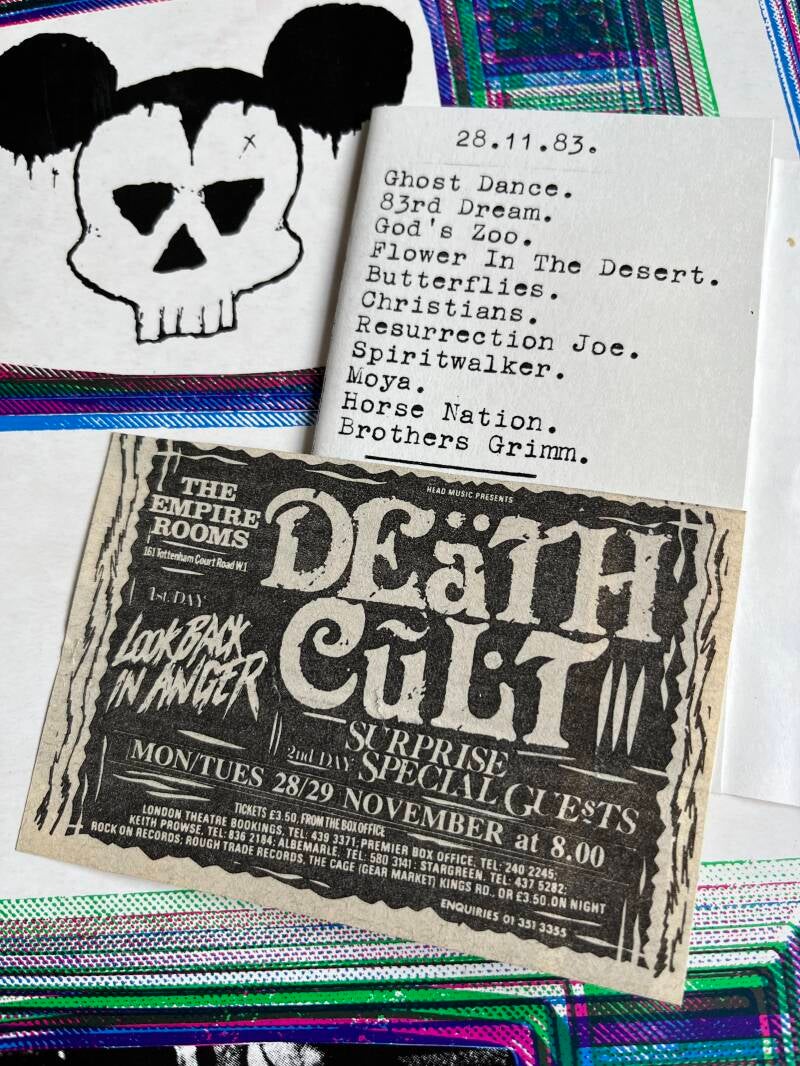 28.11.83.
Ghost Dance.
83rd Dream.
God's Zoo.
Flower In The Desert.
Butterflies.
Christians.
Resurrection Joe.
Spiritwalker.
Moya.
Horse Nation.
Brothers Grimm.
HEAD MUSIC PRESENTS
THE
EMPIRE
ROOMS
161 Tottenham Court Road W.1
DEäTH
CūLT
1st DAY
LOOK BACK
IN ANGER
2nd DAY SURPRISE
SPECIAL GUESTS
MON/TUES 28/29 NOVEMBER at 8.00
TICKETS £3.50, FROM THE BOX OFFICE
LONDON THEATRE BOOKINGS, TEL: 439 3371; PREMIER BOX OFFICE, TEL: 240 2245;
KEITH PROWSE, TEL: 836 2184; ALBEMARLE, TEL: 580 3141; STARGREEN, TEL: 437 5282;
ROCK ON RECORDS; ROUGH TRADE RECORDS, THE CAGE (GEAR MARKET) KINGS RD., OR £3.50 ON NIGHT
ENQUIRIES 01 351 3355